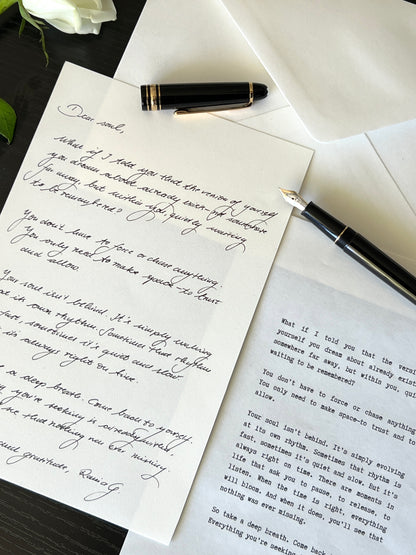 Dear soul,
What if I told you that the version of yourself
you dream about already exists—not somewhere
far away, but within you, quietly waiting
to be remembered?
You don't have to force or chase anything.
You only need to make space-to trust
and allow.
Your soul isn't behind. It's simply evolving
its own rhythm. Sometimes that rhythm
fast, sometimes it's quiet and slow.
is always right on time.
a deep breath. Come back to yourself.
you're seeking is already
that nothing was ever missing.
and gratitude,
What if I told you that the versi
yourself you dream about already exis
somewhere far away, but within you, qui
waiting to be remembered?
You don't have to force or chase anything
You only need to make space-to trust and
allow.
Your soul isn't behind. It's simply evolving
at its own rhythm. Sometimes that rhythm is
fast, sometimes it's quiet and slow. But it's
always right on time. There are moments in
life that ask you to pause, to release, to
listen. When the time is right, everything
will bloom. And when it does, you'll see that
nothing was ever missing.
So take a deep breath. Come back
Everything you're seekin